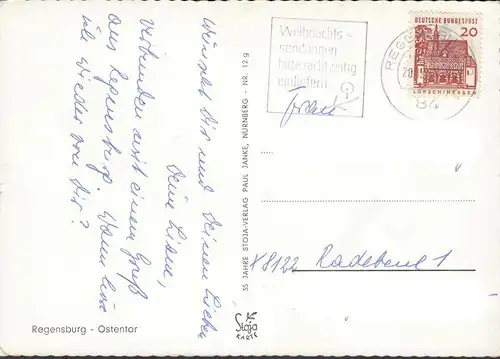 Wünscht Dir und Deinen Lieben
Deine Liane,
Verbunden mit einem Gruß
aus Regensburg. Wann höre
ich wieder von Dir?
Regensburg - Ostentor
35 JAHRE STOJA-VERLAG PAUL JANKE, NÜRNBERG - NR. 12 9
Stoja
Weihnachts-
sendungen
bitte recht zeitig
einliefern
20
84
DEUTSCHE BUNDESPOST
20
LORSCH/HESSEN
X 8122 Radebeul 1